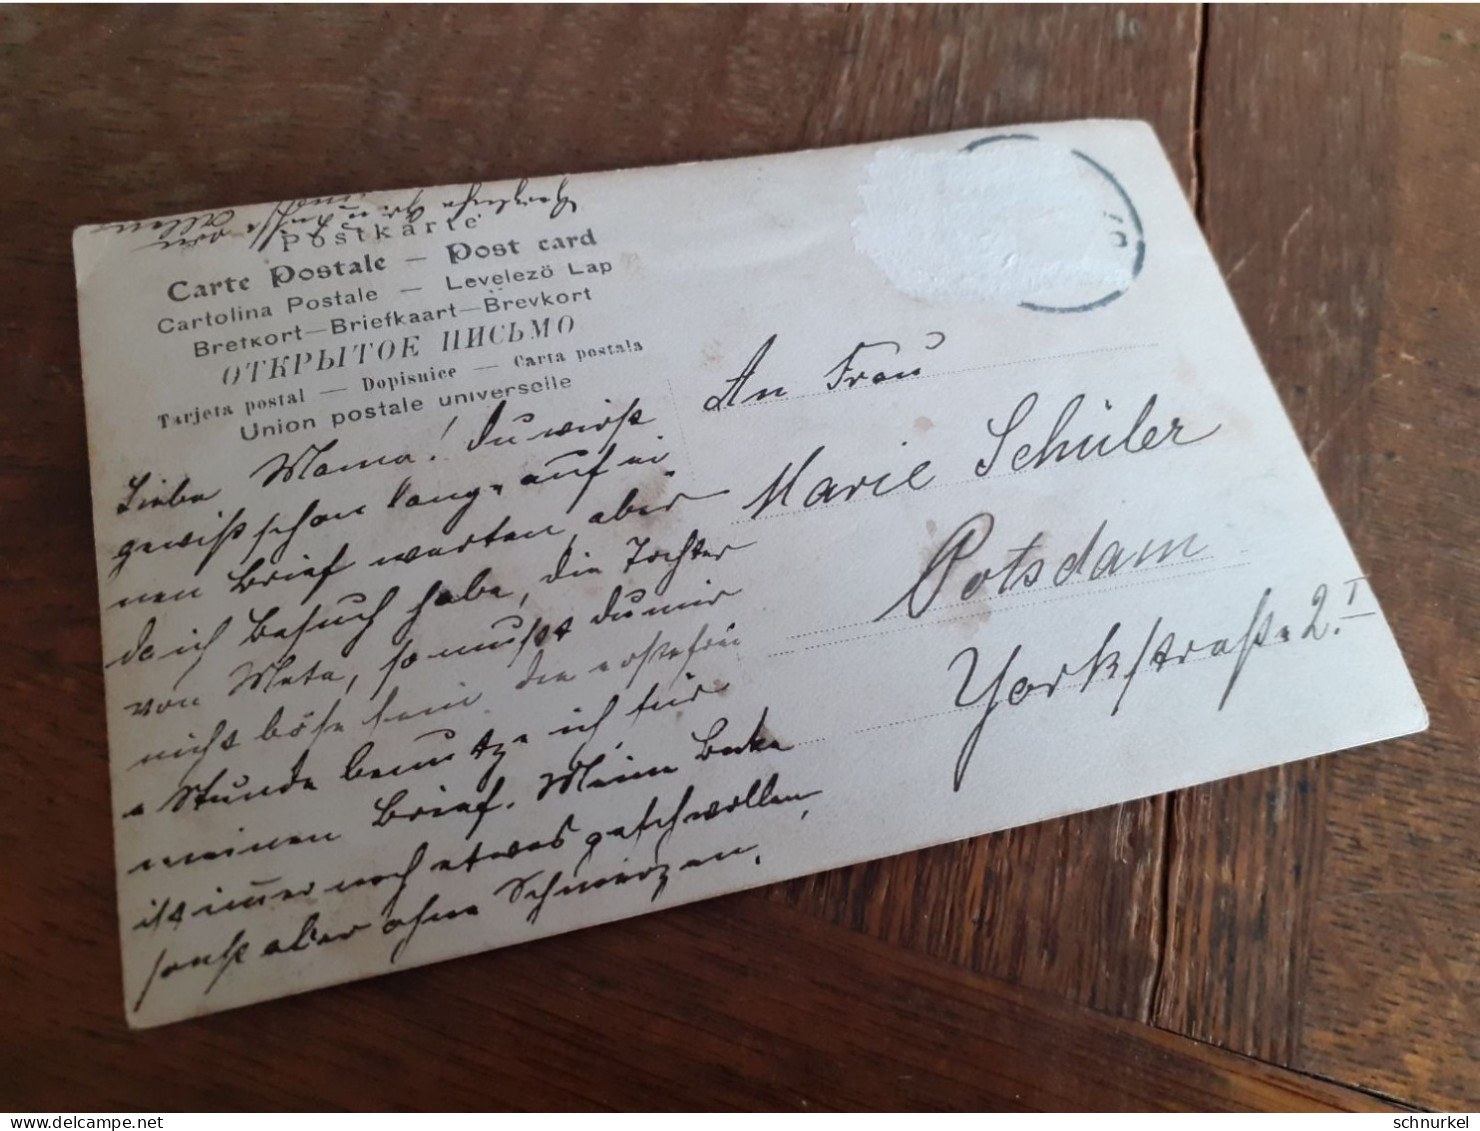 Postkarte
Carte Postale — Post card
Cartolina Postale — Levelező Lap
Brefkort—Briefkaart—Brevkort
ОТКРЫТОЕ ПИСЬМО
Tarjeta postal — Dopisnice — Carta postala
Union postale universelle
Liebe Mama! Du wirst
gewiß schon lange auf ei-
nen Brief warten, aber
da ich Besuch habe, die Tochter
von Meta, so mußt du mir
nicht böse sein. Die erste frei
e Stunde benutze ich für
meinen Brief. Meine Backe
ist immer noch etwas geschwollen,
sonst aber ohne Schmerzen.
Herzliche Grüße
von allen
An Frau
Marie Schüler
Potsdam
Yorkstraße 2. I
schnurkel